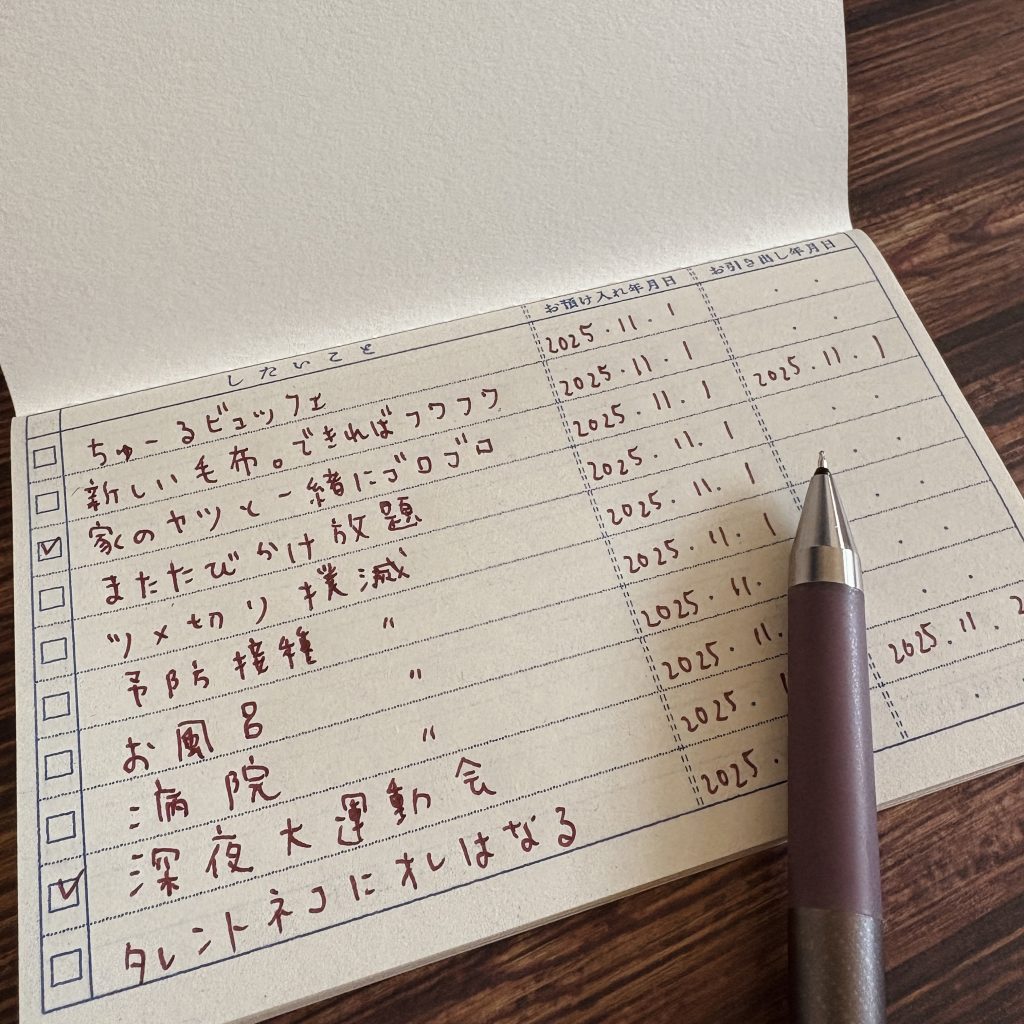 したいこと お預け入れ年月日 お引き出し年月日
ちゅーるビュッフェ 2025.11.1 . .
新しい毛布。できればフワフワ 2025.11.1 . .
家のヤツと一緒にゴロゴロ 2025.11.1 2025.11.1
またたびかけ放題 2025.11.1 . .
ツメ切り撲滅 2025.11.1 .
予防接種 〃 2025.11.1 . .
お風呂 〃 2025.11. . .
病院 〃 2025.11. . .
深夜大運動会 2025. 2025.11.2
タレントネコにオレはなる 2025. . .